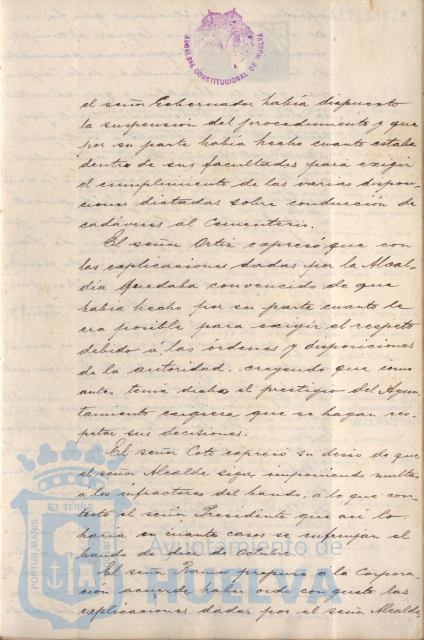 ALCALDIA CONSTITUCIONAL DE HUELVA
el señor Gobernador habia dispuesto
la suspensión del procedimiento y que
por su parte habia hecho cuanto estaba
dentro de sus facultades para exigir
el cumplimiento de las varias disposi-
ciones dictadas sobre conducción de
cadáveres al Cementerio.
El señor Ortiz expresó que con
las explicaciones dadas por la Alcal-
dia quedaba convencido de que
habia hecho por su parte cuanto le
era posible para exigir el respeto
debido á las órdenes y disposiciones
de la autoridad, creyendo que como
antes tenia dicho el prestigio del Ayun-
tamiento exigiera que se hagan res-
petar sus decisiones.
El señor Coto expresó su deseo de que
el señor Alcalde siga imponiendo multas
a los infractores del bando, á lo que con-
testó el señor Presidente que asi lo
haria en cuantos casos se infrinjan el
bando de diez de Octubre.
El señor propuso á la Corpora-
ción acuerde haber oido con gusto las
explicaciones dadas por el señor Alcalde
PORTUS MARIS ET TERRE
Ayuntamiento de
HUELVA